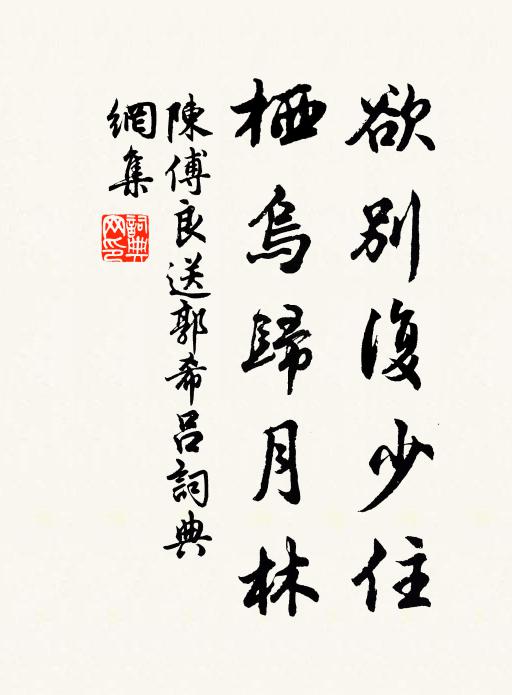 欲別復少住
栖烏歸月林
陳傅良送郭希呂詞典
網集
詞典網印